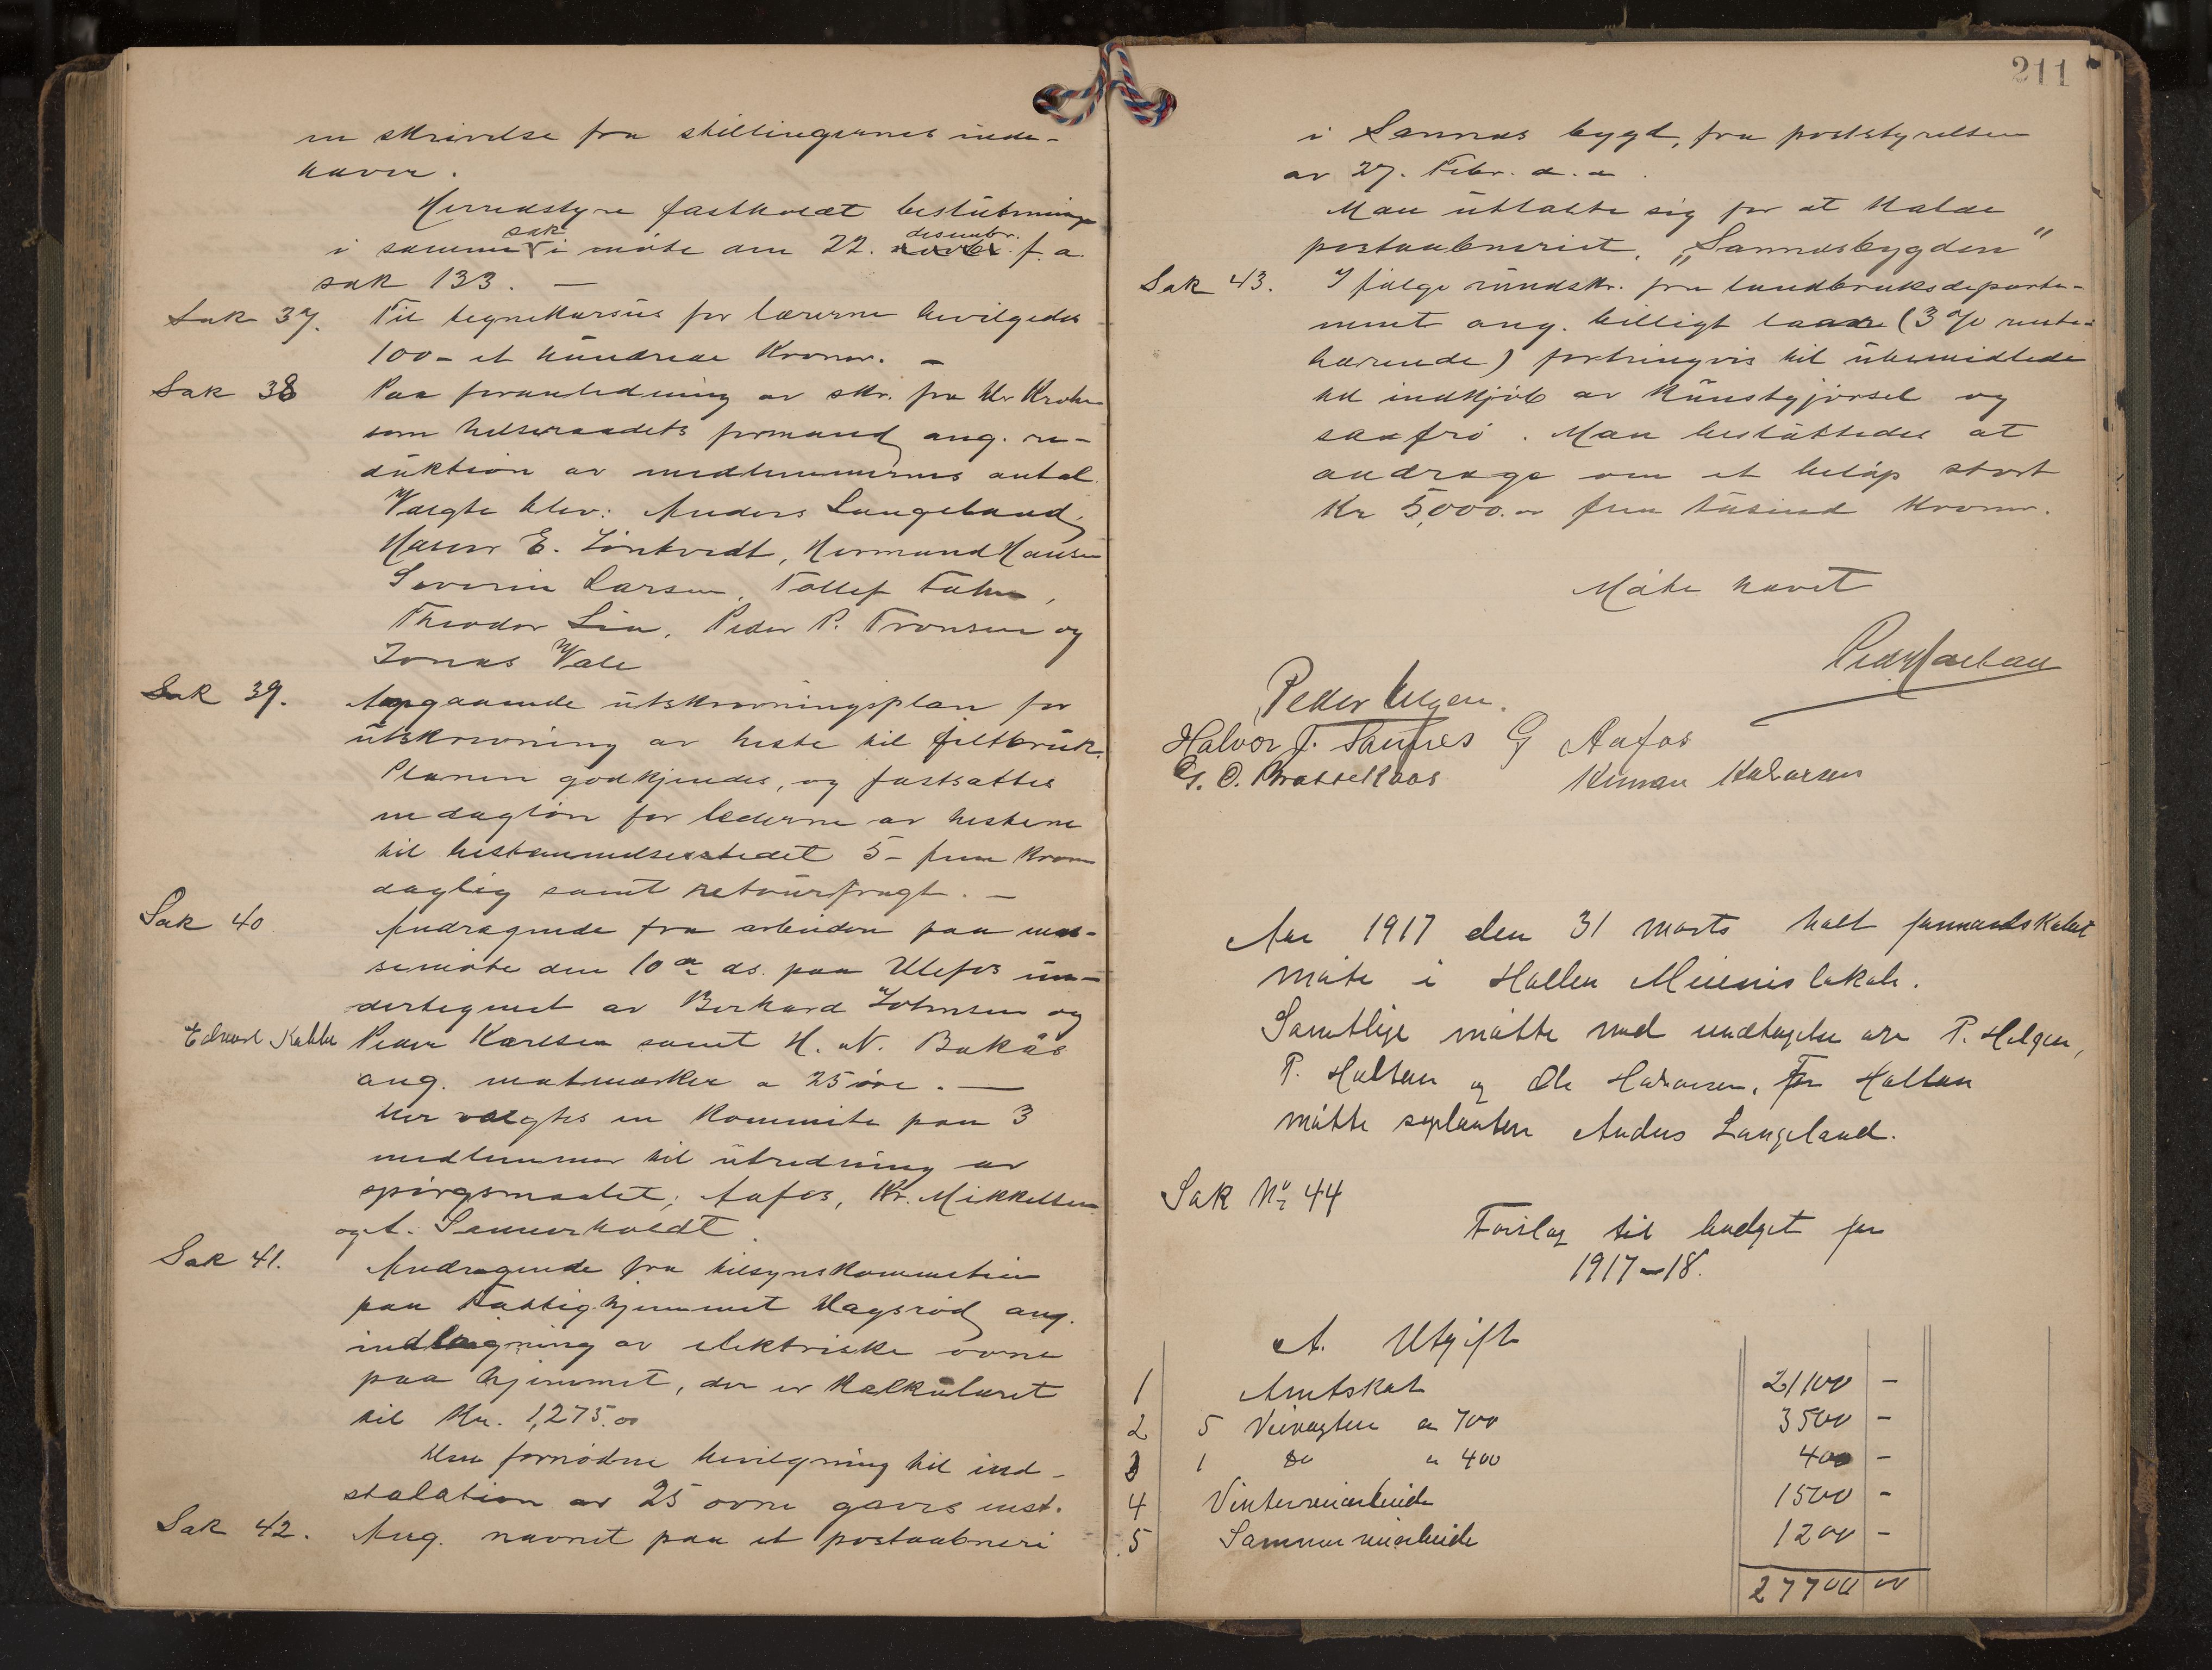 en skrivelse fra stillingernes inde-
haver.
Herredstyre fastholdt beslutninge
i samme sak i møte den 22. desembr. f. a.
sak 133. —
Sak 37. Til tegnekursus for lærerne bevilgedes
100 - et hundrede Kroner. —
Sak 38 Paa foranledning av skr. fra Dr Krohn
som helseraadets formand ang. re-
duktion av medlemmernes antal.
Valgte blev: Anders Langeland,
Halvor E. Hermand Hansen
Severin Larsen, Tollef
Theodor Lia, Peder P. Tronsen og
Jonas Vale
Sak 39. Angaaende utskrivningsplan for
utskrivning av heste til feltbruk.
Planen godkjendes, og fastsattes
en dagløn for lederne av hestene
til bestemmelsesstedet 5 - fem Kroner
daglig samt retourfragt. —
Sak 40 Andragende fra arbeidere paa mas-
semøte den 10de ds. paa Ulefos un-
dertegnet av Berhard Johnsen og
Edvard Kabbe Peder Karlsen samt H. N. Bakås
ang. matmerker a 25 øre. —
Her valgtes en Kommite paa 3
medlemmer til utredning av
spørgsmaalet; Aafos, Kr. Mikkelsen
og A. Sannerholdt.
Sak 41. Andragende fra tilsynskommiteen
paa Fattighjemmet Hagsrød ang.
indlægning av elektriske ovne
paa hjemmet, der er kalkuleret
til Kr. 1,275.00
Den fornødne bevilgning til ind-
stalation av 25 ovne gaves enst.
Sak 42. Ang. navnet paa et postaabneri
211
i Sannes bygd, fra poststyrelsen
av 27. Febr. d. a.
Man uttalte sig for at kalde
postaabneriet, „Sannesbygden"
Sak 43. I følge rundskr. fra landbruksdeparte-
ment ang. billigt laan (3 % rente-
bærende) fortringvis til ubemidlede
til indkjøb av kunstgjødsel og
saafrø. Man besluttedes at
andrage om et beløp stort
Kr 5,000.00 fem tusind Kroner.
Møte hævet
Peder Helgen.
Halvor J. Sannes G Aafos
G. O. Brattekaas
Aar 1917 den 31 marts holt formandskabet
møte i Hollen Meieris lokale.
Samtlige møtte med undtagelse av P. Helgen,
P. Holtan og Ole Halvorsen. For Holtan
møtte suplanten Anders Langeland.
Sak No 44
Forslag til budget for
1917-18.
A. Utgift
1 Amtskat 21100 -
2 5 Veivogtere a 700 3500 -
3 1 Do a 400 400 -
4 Vinterveiarbeide 1500 -
5 Sommerveiarbeide 1200 -
27700 00